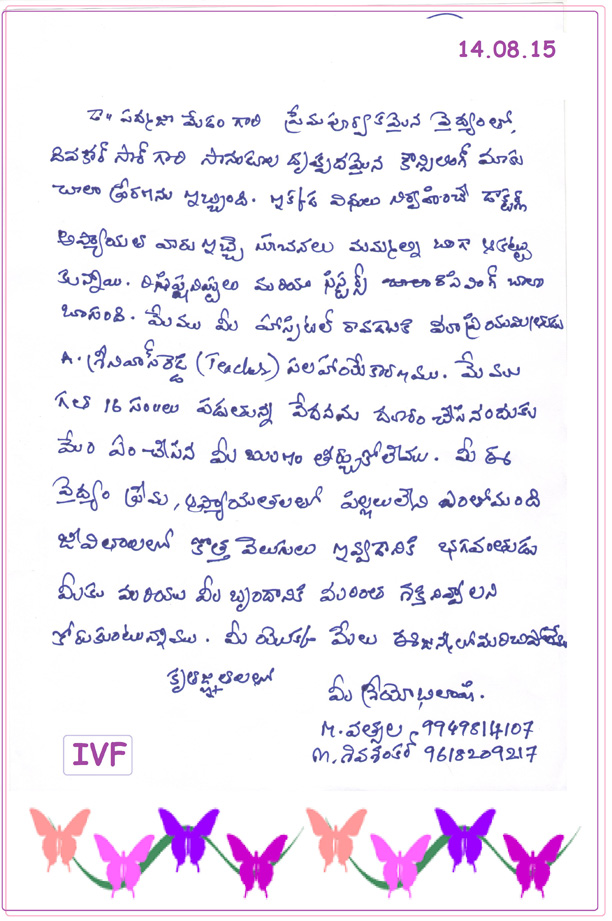 14.08.15
డా॥ పద్మజా మేడం గారి ప్రేమపూర్వకమైన వైద్యంతో,
దివాకర్ సార్ గారి సానుకూల దృక్పదమైన కౌన్సిలింగ్ మాకు
చాలా ప్రేరణను ఇచ్చింది. ఇక్కడ విధులు నిర్వహించే డాక్టర్స్
వారు ఇచ్చే సూచనలు మమ్మల్ని బాగా ఆకట్టు
కున్నాయి. మరియు సిస్టర్స్ చాలా
బాగుంది. మేము మీ హాస్పిటల్ రావడానికి
A. శ్రీనివాస్‌రెడ్డి (Teacher) సలహాయే కారణము. మేము
గత 16 సంలు పడుతున్న వేదనను దూరం చేసినందుకు
మేం ఏం చేసిన మీ ఋణం తీర్చుకోలేము. మీ ఈ
వైద్యం ప్రేమ, ఆప్యాయతలతో పిల్లలులేని ఎంతోమంది
జీవితాలలో కొత్త వెలుగులు ఇవ్వడానికి భగవంతుడు
మీకు మరియు మీ బృందానికి మరింత శక్తినివ్వాలని
కోరుకుంటున్నాము. మీ యొక్క మేలు ఈజన్మలో
కృతజ్ఞతలతో
మీ శ్రేయోభిలాషి.
M. వత్సల 9949814107
M. శివశంకర్ 9618209217
IVF